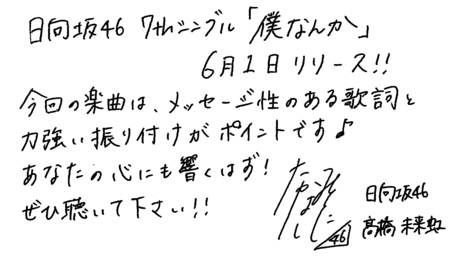 日向坂46 7thシングル「僕なんか」
6月1日リリース!!
今回の楽曲は、メッセージ性のある歌詞と
力強い振り付けがポイントです♪
あなたの心にも響くはず!
ぜひ聴いて下さい!!
46
日向坂46
髙橋未来虹